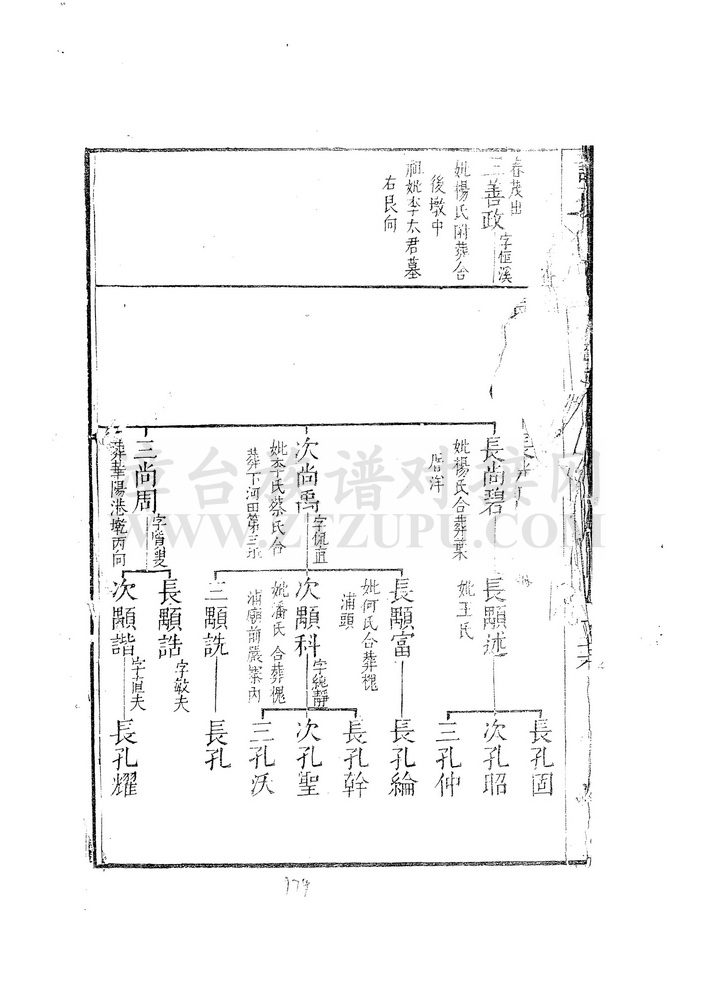 春茂出
三善政
字恒溪
妣楊氏附葬合
後墩中
祖妣李太君墓
右艮向
長尚碧
妣楊氏合葬葉
唐洋
次尚禹
字侃直
妣李氏蔡氏合
葬下河田第三班
三尚周
葬華陽港墩丙向
長顒述
妣王氏
長顒富
妣何氏合葬槐
浦頭
次顒科
字純靜
妣潘氏合葬槐
浦廟前嚴寨內
三顒詵
長顒誥
字敏夫
次顒諧
字直夫
長孔固
次孔昭
三孔仲
長孔綸
長孔幹
次孔聖
三孔沃
長孔
長孔耀
174